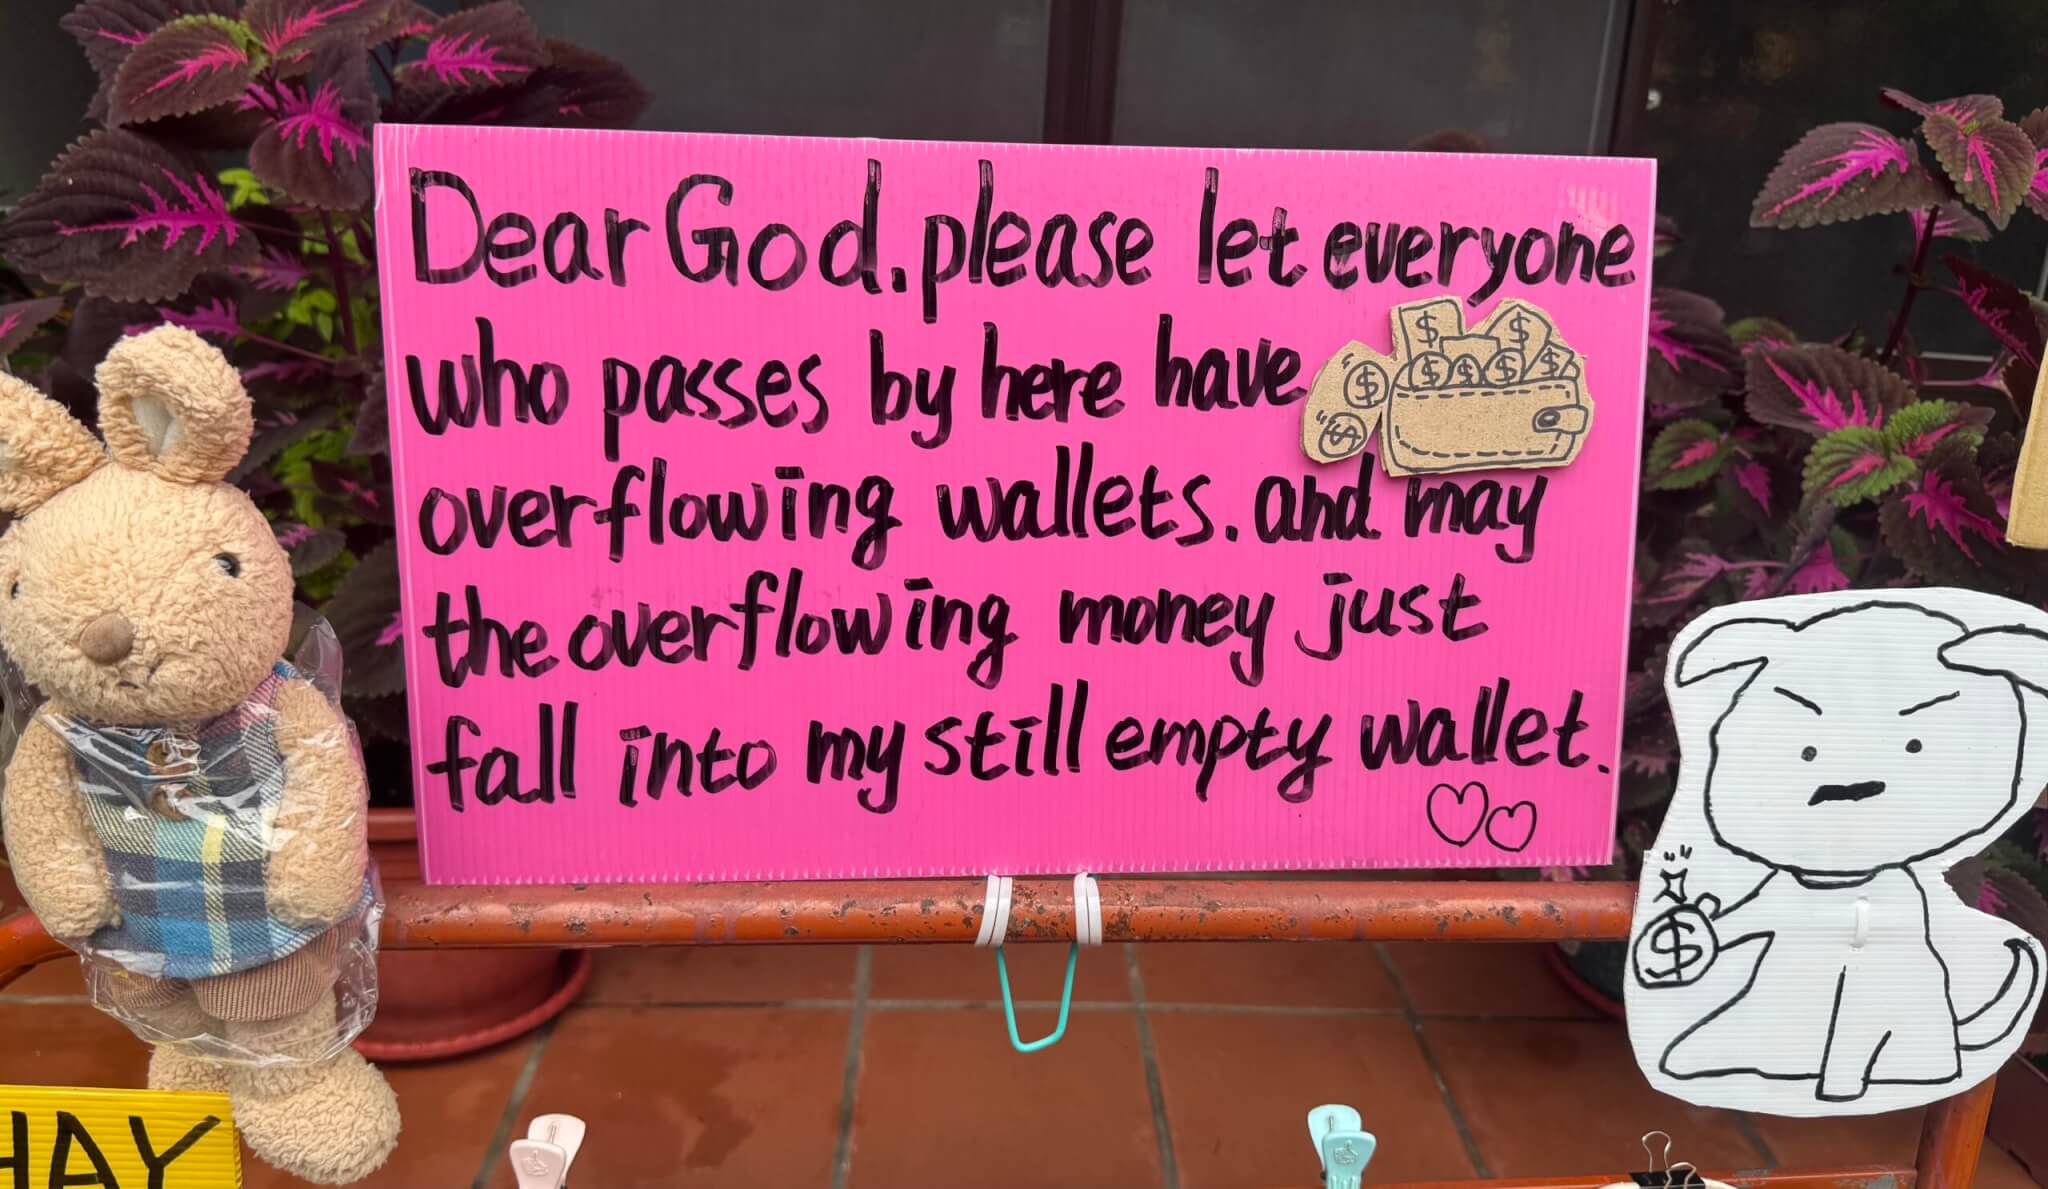 Dear God. please let everyone
who passes by here have
overflowing wallets. and may
the overflowing money just
fall into my still empty wallet.
$ $
$ $ $ $ $
$
$
HAY